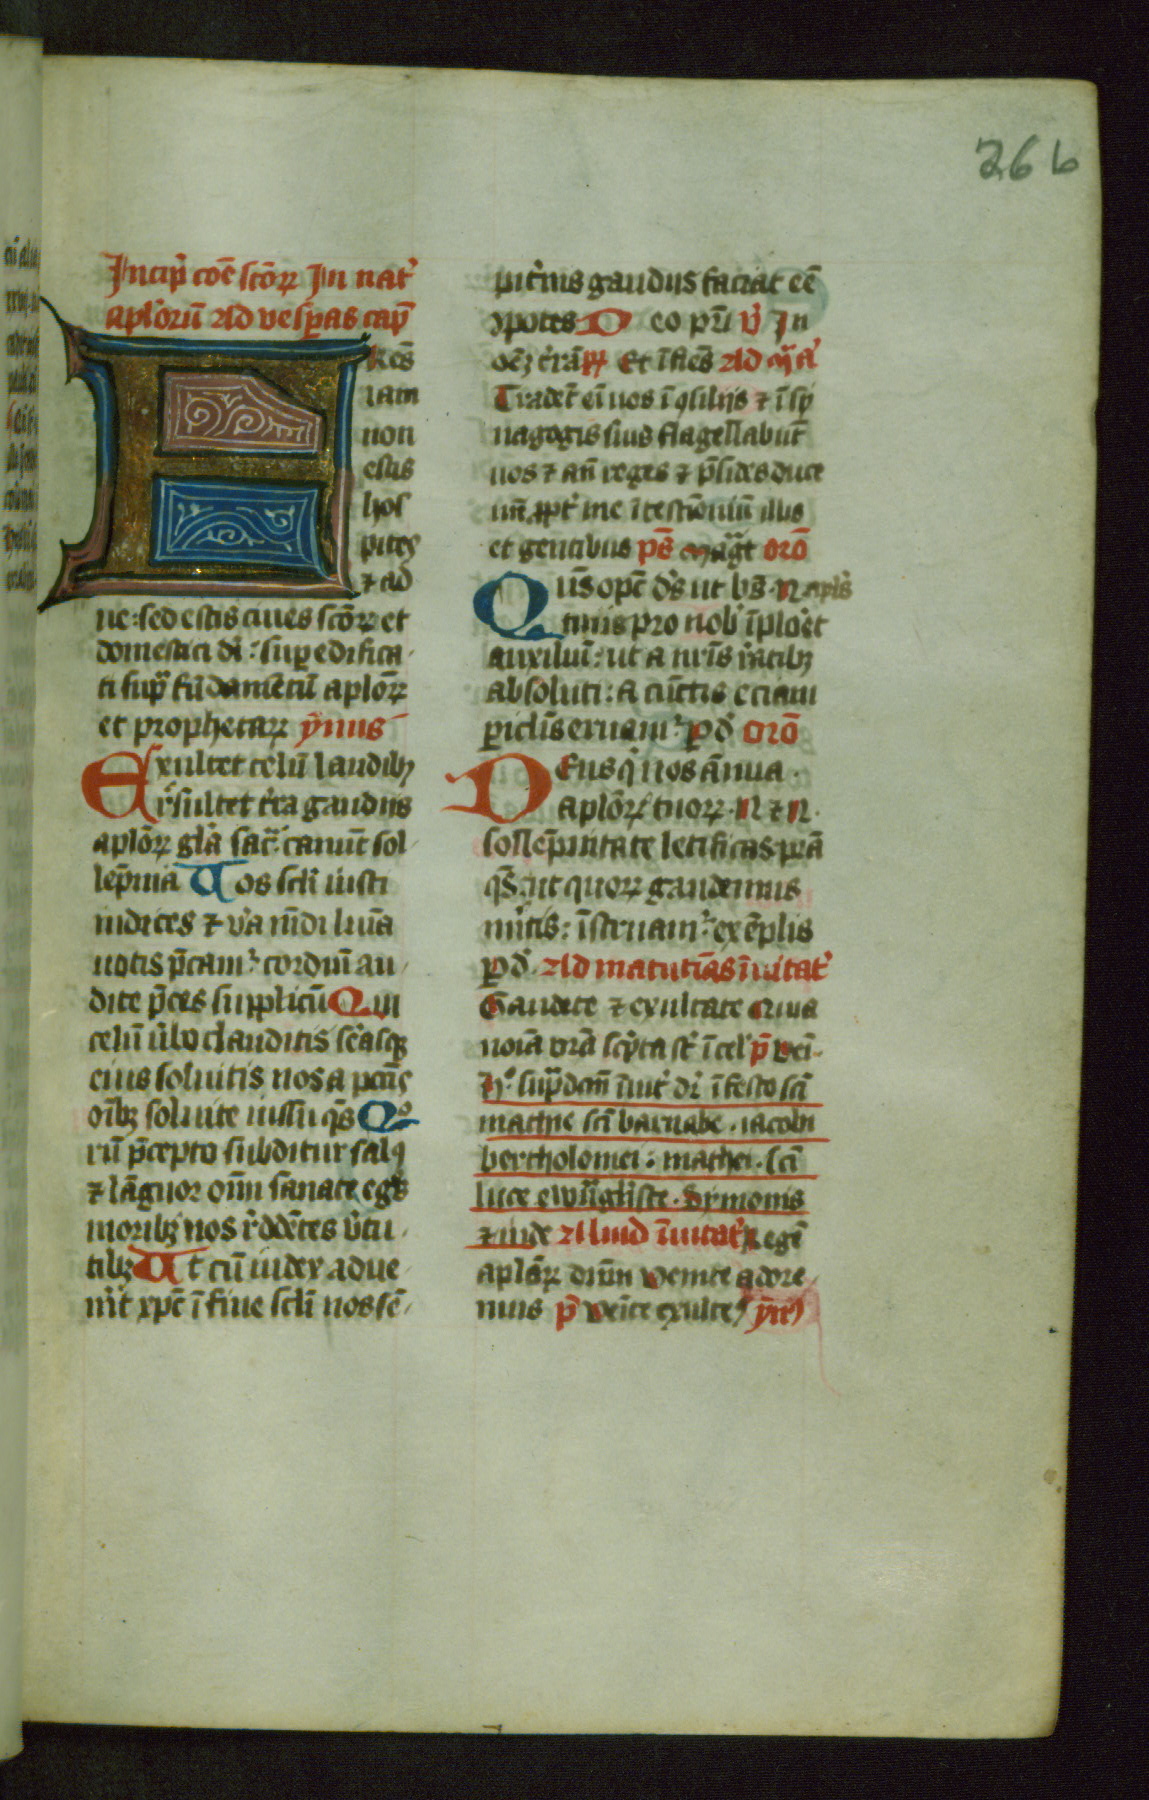 266
Incip̄ cōe sc̄oꝝ In nat᷑
apl̓oꝝ Ad vesp̄as cap̄
A kēs
iam
non
estis
hos
pites
⁊ ad
ue: sed estis ciues sc̄oꝝ et
domestici dī: sup̄edifica
ti sup̄ fūdamētū apl̄oꝝ
et prophetaꝝ ȳmus
Exultet celū laudibꝫ
rēsultet tr̄a gaudiis
apl̄oꝝ gl̄a sac̄ canūt sol
lēpnia Uos sc̄li iusti
iudices ⁊ v̓a mūdi lumīa
uotis p̄cam᷑ cordiū au
dite p̄ces supplicū Qui
celū v̓bo clauditis serasqꝫ
eius soluitis nos a pctīs
oībꝫ soluite iussu q̄s Qo
rū p̄cepto subditur salꝰ
⁊ lāguor oīm sanate egꝰ
moribꝫ nos reddētes v̓tu
tibꝫ Ut cū iudex adue
nit xp̄c ī fine sc̄li nos sē
pit̓nis gaudiis faciat eē
ꝯpotes Deo pr̄i V̓ In
oēꝫ t̓rā Et ī fiēs Ad mᵃ aᵃ
Tradēt eī uos ī ꝯsiliis ⁊ ī sy
nagogis suis flagellabūt
uos ⁊ an̄ reges ⁊ p̄sides duce
mī ꝓpt̓ me ī testimoniū illis
et gentibus pS̄ magᵗ orō
Qūs op̄c dS̄ ut bS̄ N apl̓s
tuus pro nob̓ īploret
auxiliū: ut a nr̄is reatibꝫ
absoluti: a cūctis eciam
piclīs eruam᷑ p d̓ orō
Deus q̓ nos ānua
apl̄oꝝ tuoꝝ N ⁊ N
sollēpnitate letificas p̄sta
q̄s ut quoꝝ gaudemus
m̓itis: īstruam᷑ exēplis
p d̓ Ad matutīas īuitat᷑
Gaudete ⁊ exultate quia
noīa vr̄a sc̓pta st̓ ī cel̓ p̄ Ven̄
Hᵒ sup̄dcm īuit̓ dr̓ ī festo sc̄i
mathie sc̄i barnabe iacobi
bertholomei mathei sc̄i
luce ewāgl̄iste Symonis
⁊ iude Aliud īuitat᷑ Regē
apl̄oꝝ dn̄m Venite adore
mus p̄ Venīte exulteꝰ ym̄ꝰ